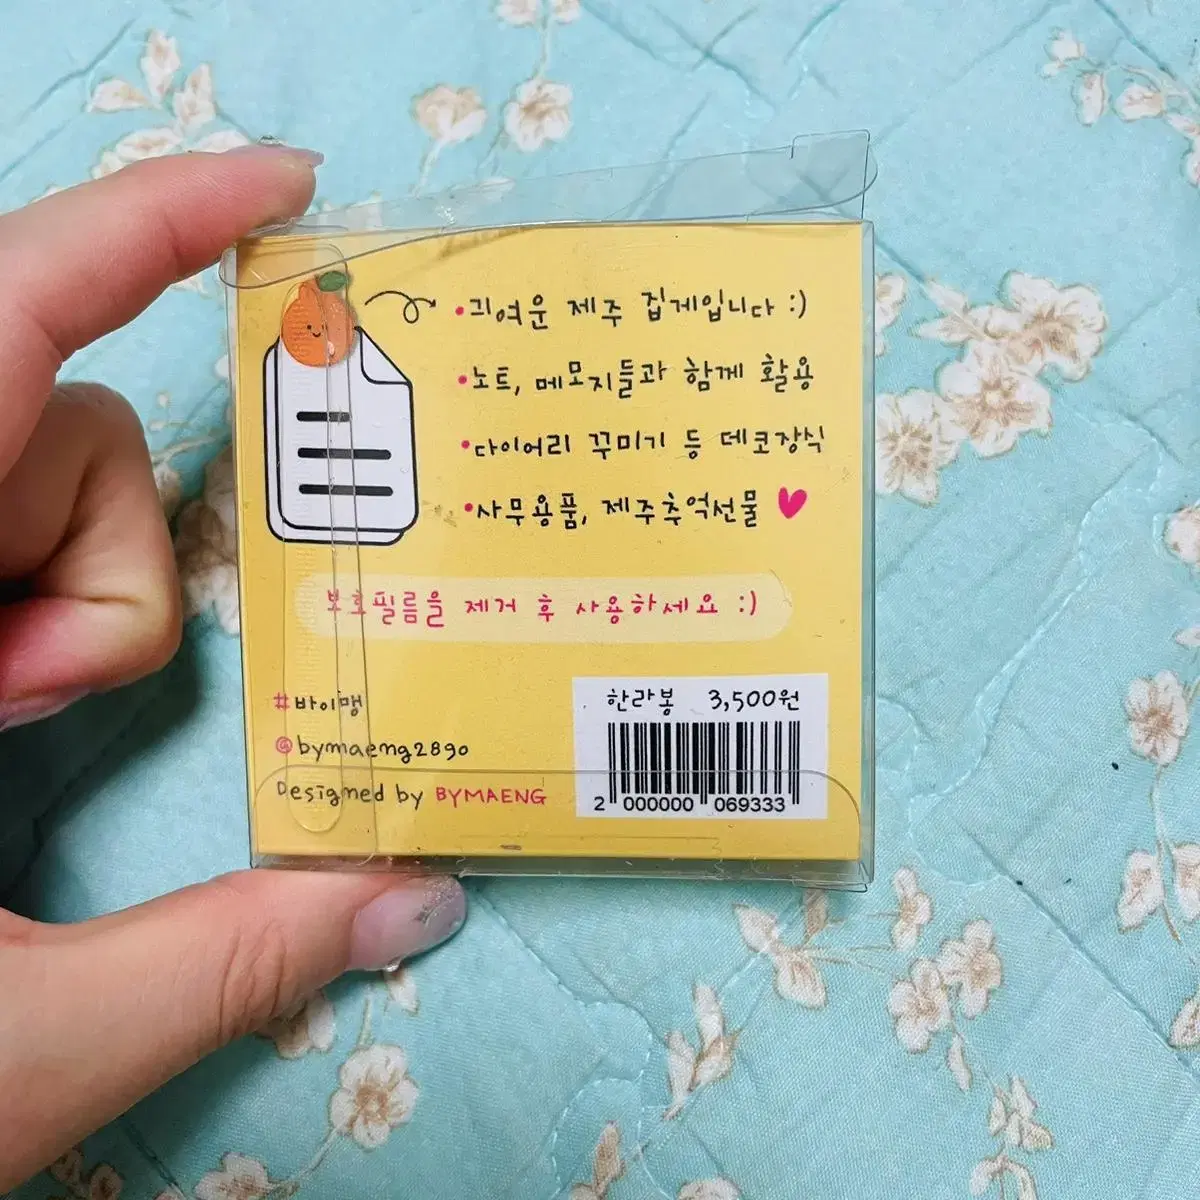 •귀여운 제주 집게입니다 :)
•노트, 메모지들과 함께 활용
•다이어리 꾸미기 등 데코장식
•사무용품, 제주추억선물
보호필름을 제거 후 사용하세요 :)
#바이맹
@bymaeng2890
Designed by BYMAENG
한라봉 3,500원
2 000000 069333